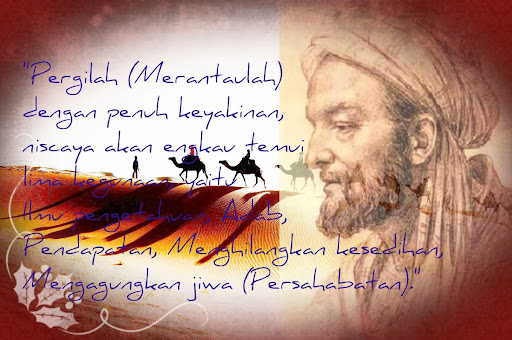 "Pergilah (Merantaulah)
dengan penuh keyakinan,
niscaya akan engkau temui
lima kegunaan, yaitu
Ilmu pengetahuan, Adab,
Pendapatan, Menghilangkan kesedihan,
Mengagungkan jiwa (Persahabatan)."